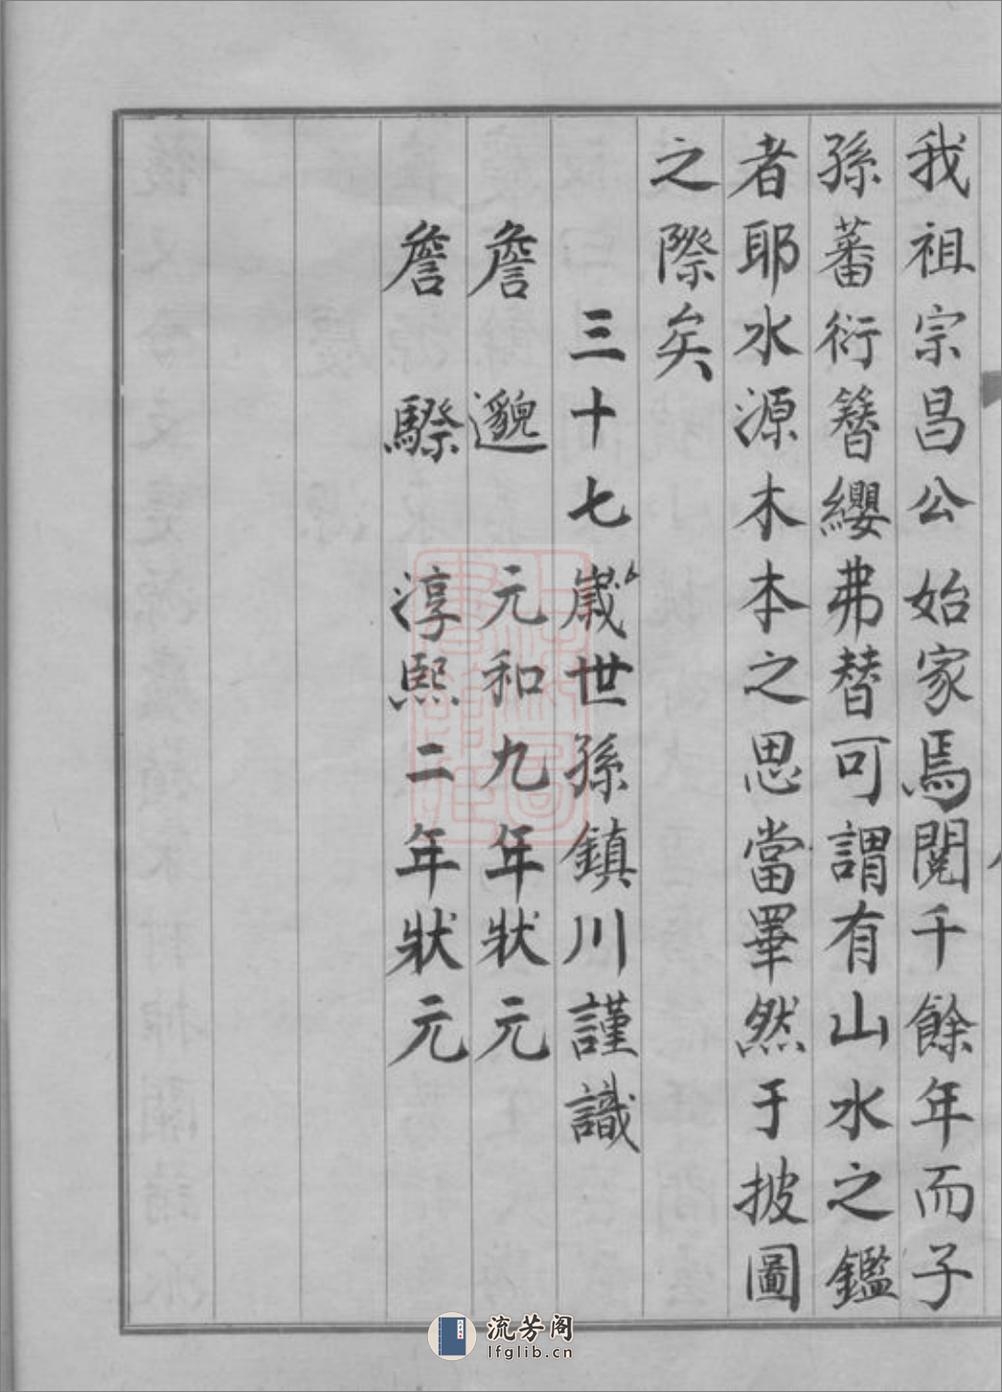 我祖宗昌公始家焉閱千餘年而子
孫蕃衍簪纓弗替可謂有山水之鑑
者耶水源木本之思當畢然于披圖
之際矣
三十七歲世孫鎮川謹識
詹邈元和九年狀元
詹騤淳熙二年狀元
流芳阁
lfglib.cn